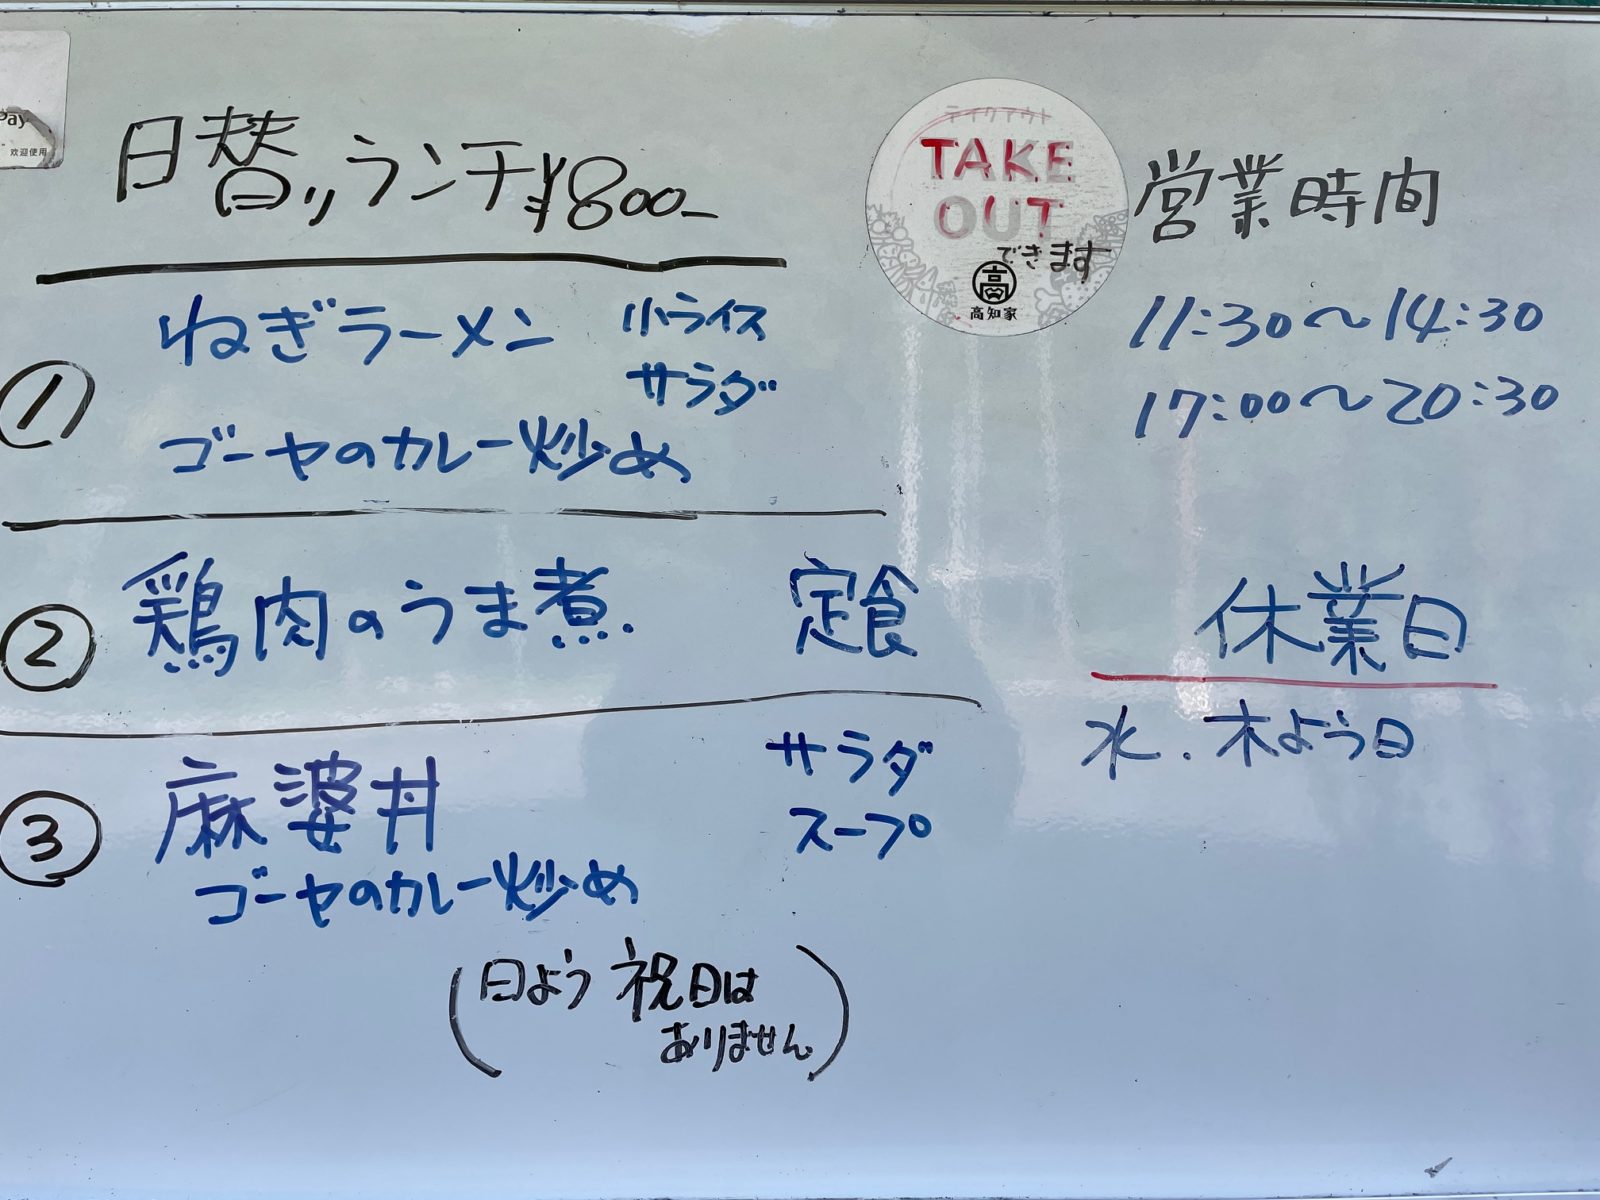 Pay
欢迎使用
日替りランチ¥800-
① ねぎラーメン 小ライス
サラダ
ゴーヤのカレー炒め
② 鶏肉のうま煮 定食
③ 麻婆丼 サラダ
スープ
ゴーヤのカレー炒め
(日よう 祝日は
ありません)
テイクアウト
TAKE
OUT
できます
高
高知家
営業時間
11:30〜14:30
17:00〜20:30
休業日
水.木よう日